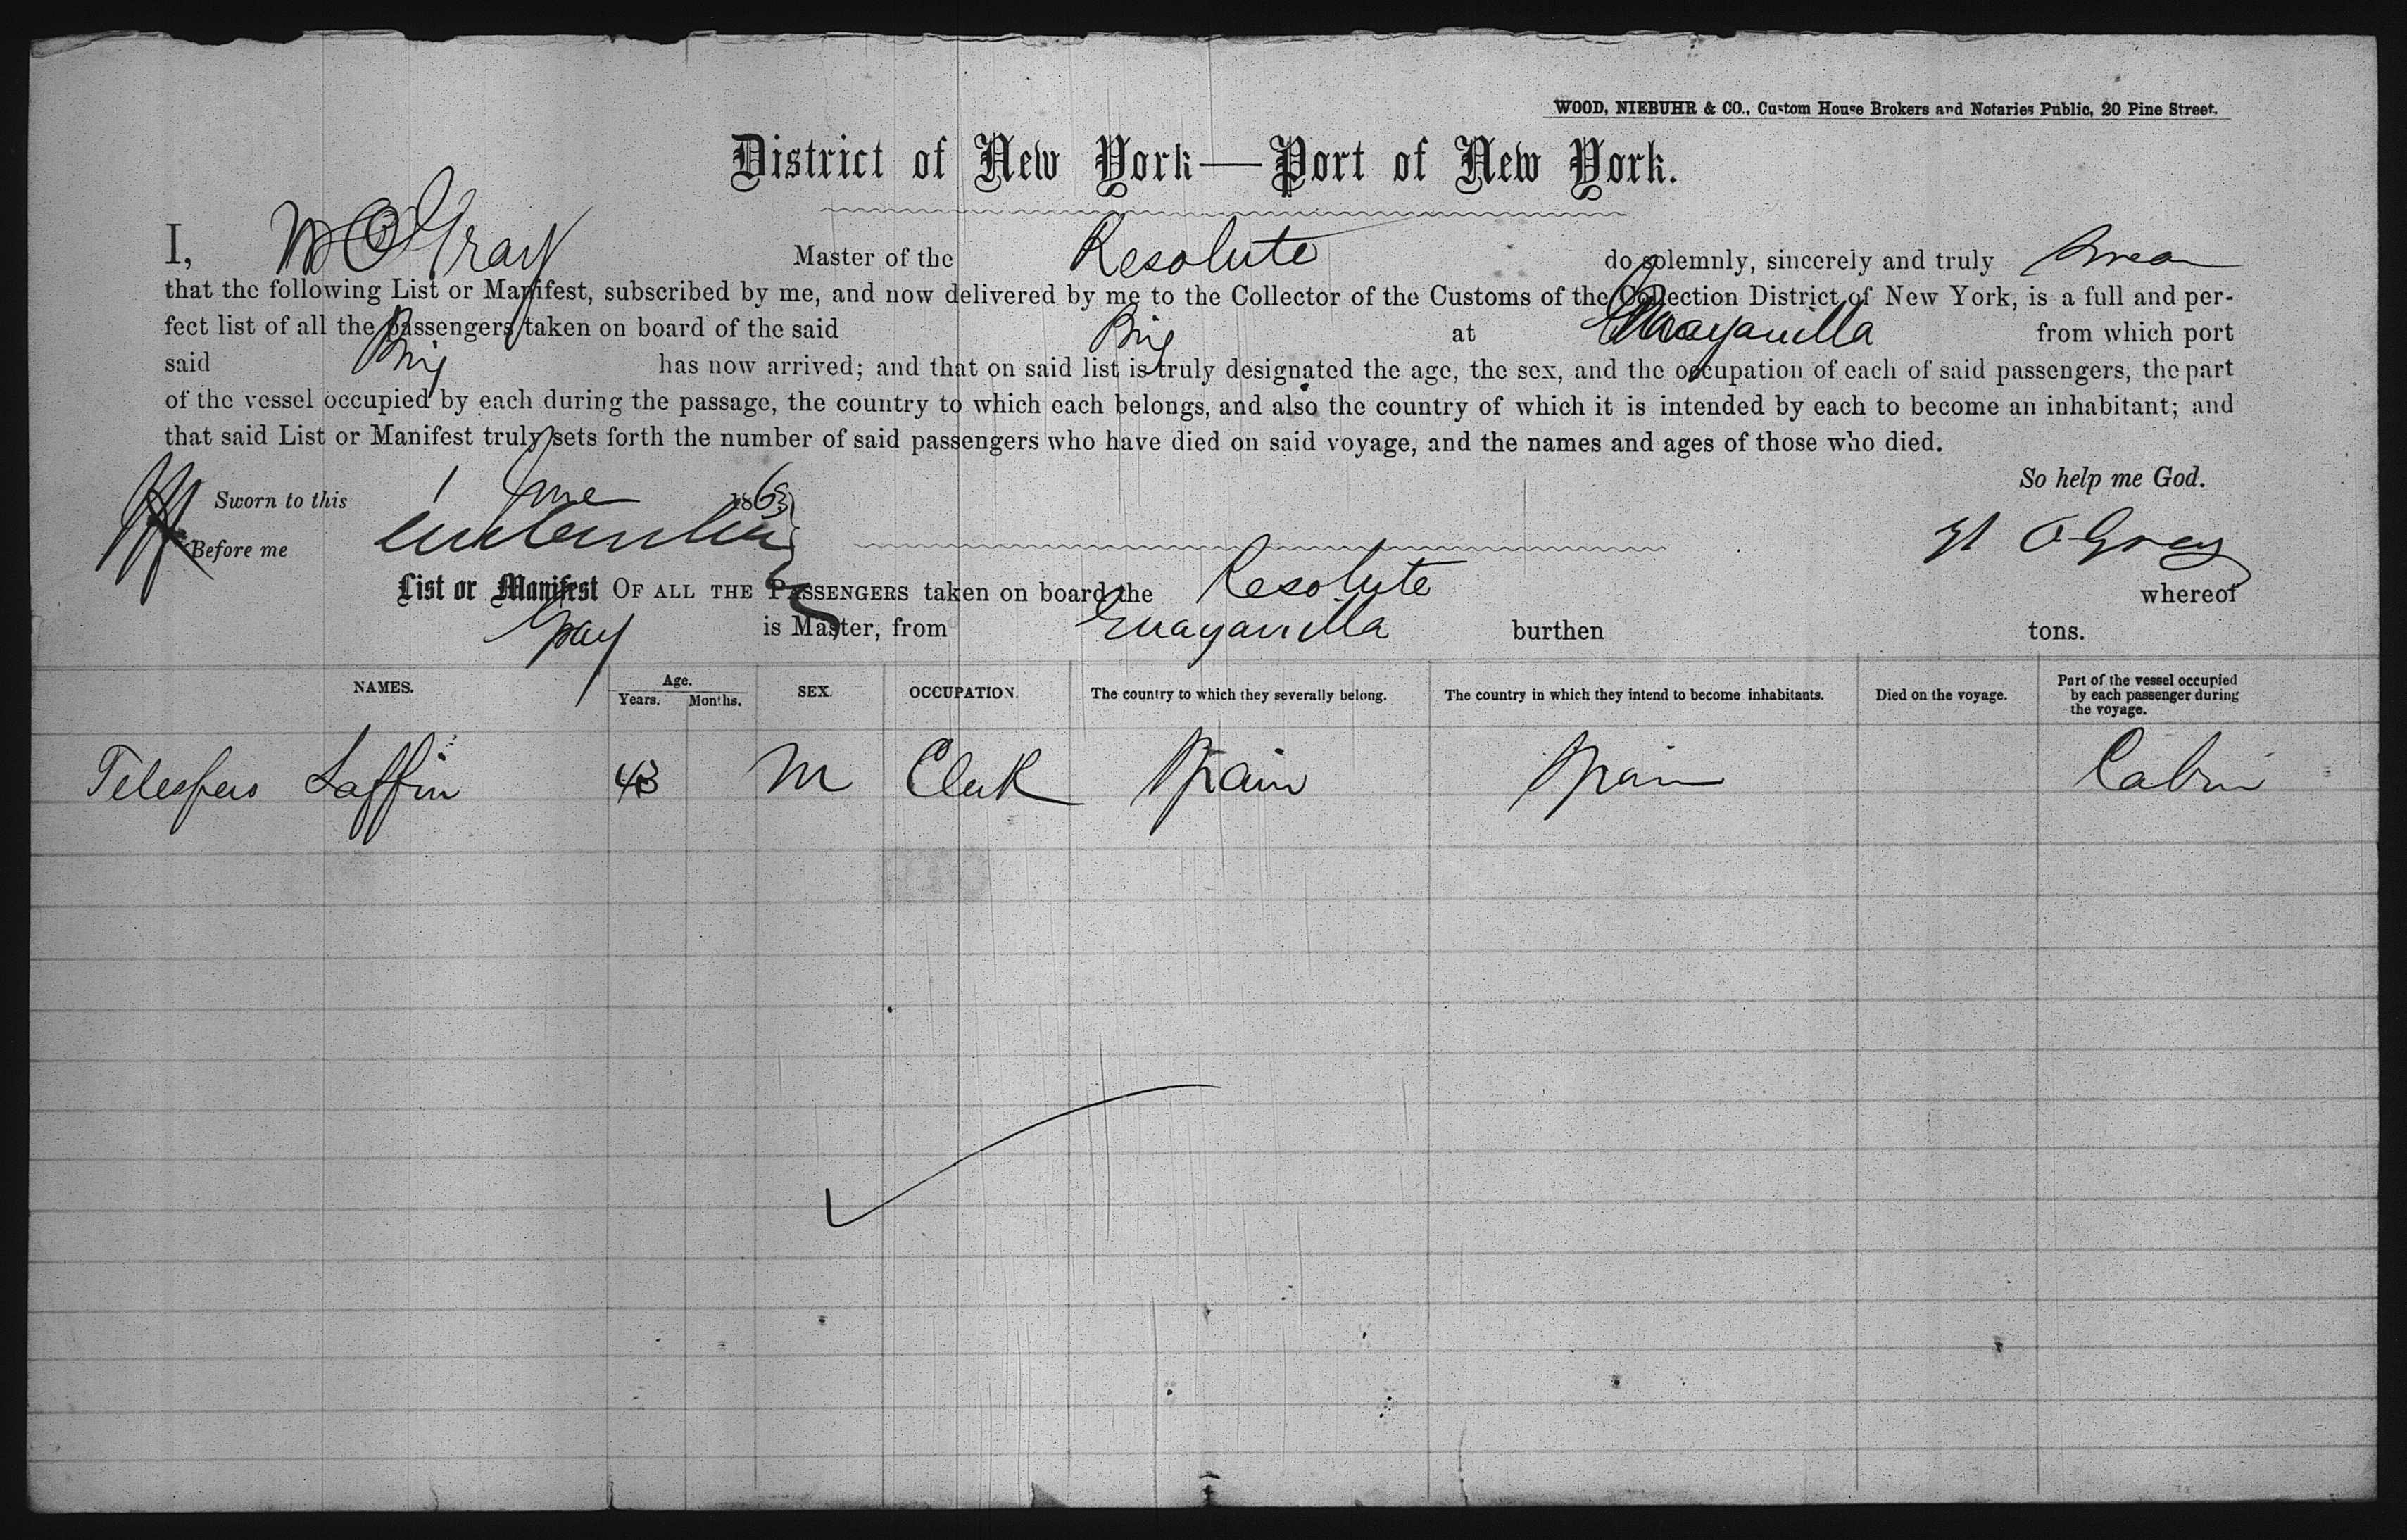 WOOD, NIEBUHR & CO., Custom House Brokers and Notaries Public, 20 Pine Street.
District of New York—Port of New York.
I, W O Gray Master of the Resolute do solemnly, sincerely and truly swear
that the following List or Manifest, subscribed by me, and now delivered by me to the Collector of the Customs of the Collection District of New York, is a full and per-
fect list of all the passengers taken on board of the said Brig at Guayanilla from which port
said Brig has now arrived; and that on said list is truly designated the age, the sex, and the occupation of each of said passengers, the part
of the vessel occupied by each during the passage, the country to which each belongs, and also the country of which it is intended by each to become an inhabitant; and
that said List or Manifest truly sets forth the number of said passengers who have died on said voyage, and the names and ages of those who died.
So help me God.
Sworn to this 1 June 1863
Before me
O Gray
List or Manifest OF ALL THE PASSENGERS taken on board the Resolute whereof
Gray is Master, from Guayanilla burthen tons.
NAMES. Age. Years. Months. SEX. OCCUPATION. The country to which they severally belong. The country in which they intend to become inhabitants. Died on the voyage. Part of the vessel occupied by each passenger during the voyage.
Laffin 43 M Clerk Spain Spain Cabin